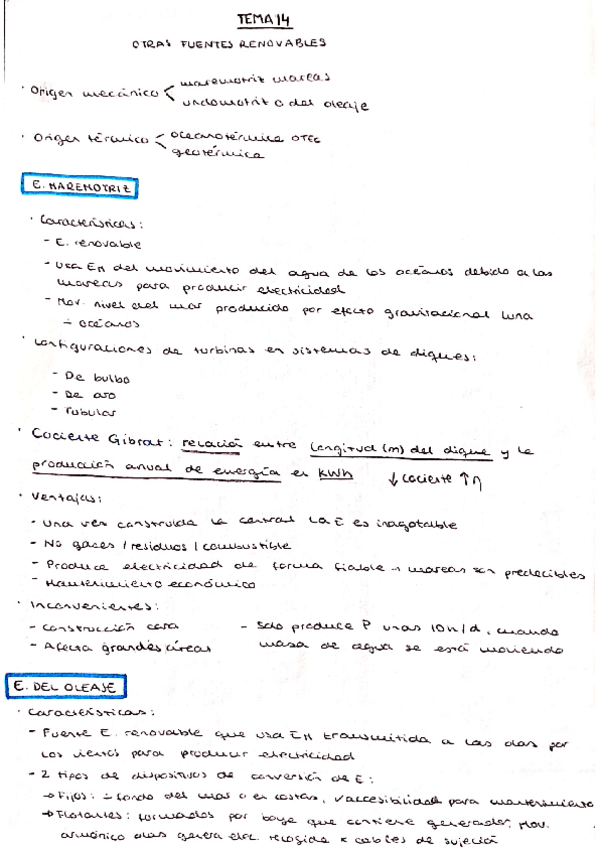 TEMA 14
OTRAS FUENTES RENOVABLES
· Origen mecánico < maremotriz mareas
undomotriz o del oleaje
· Origen térmico < oceanotérmica OTEC
geotérmica
E. MAREMOTRIZ
· Características:
- E. renovable
- Usa EM del movimiento del agua de los océanos debido a las
mareas para producir electricidad
- Mov. nivel del mar producido por efecto gravitacional luna
÷ océanos
· Configuraciones de turbinas en sistemas de diques:
- De bulbo
- De aro
- Tubular
· Cociente Gibrat: relación entre longitud (m) del dique y la
producción anual de energía en kWh ↓ cociente ↑ η
· Ventajas:
- Una vez construida la central la E es inagotable
- No gases / residuos / combustible
- Produce electricidad de forma fiable → mareas son predecibles
- Mantenimiento económico
· Inconvenientes:
- Construcción cara - Solo produce P unas 10h/d, cuando
- Afecta grandes áreas masa de agua se está moviendo
E. DEL OLEAJE
· Características:
- Fuente E. renovable que usa EM transmitida a las olas por
los vientos para producir electricidad
- 2 tipos de dispositivos de conversión de E:
→ Fijos: ÷ fondo del mar o en costas, accesibilidad para mantenimiento
→ Flotantes: formados por boya que contiene generador, Mov.
armónico olas genera elec. recogida x cables de sujeción